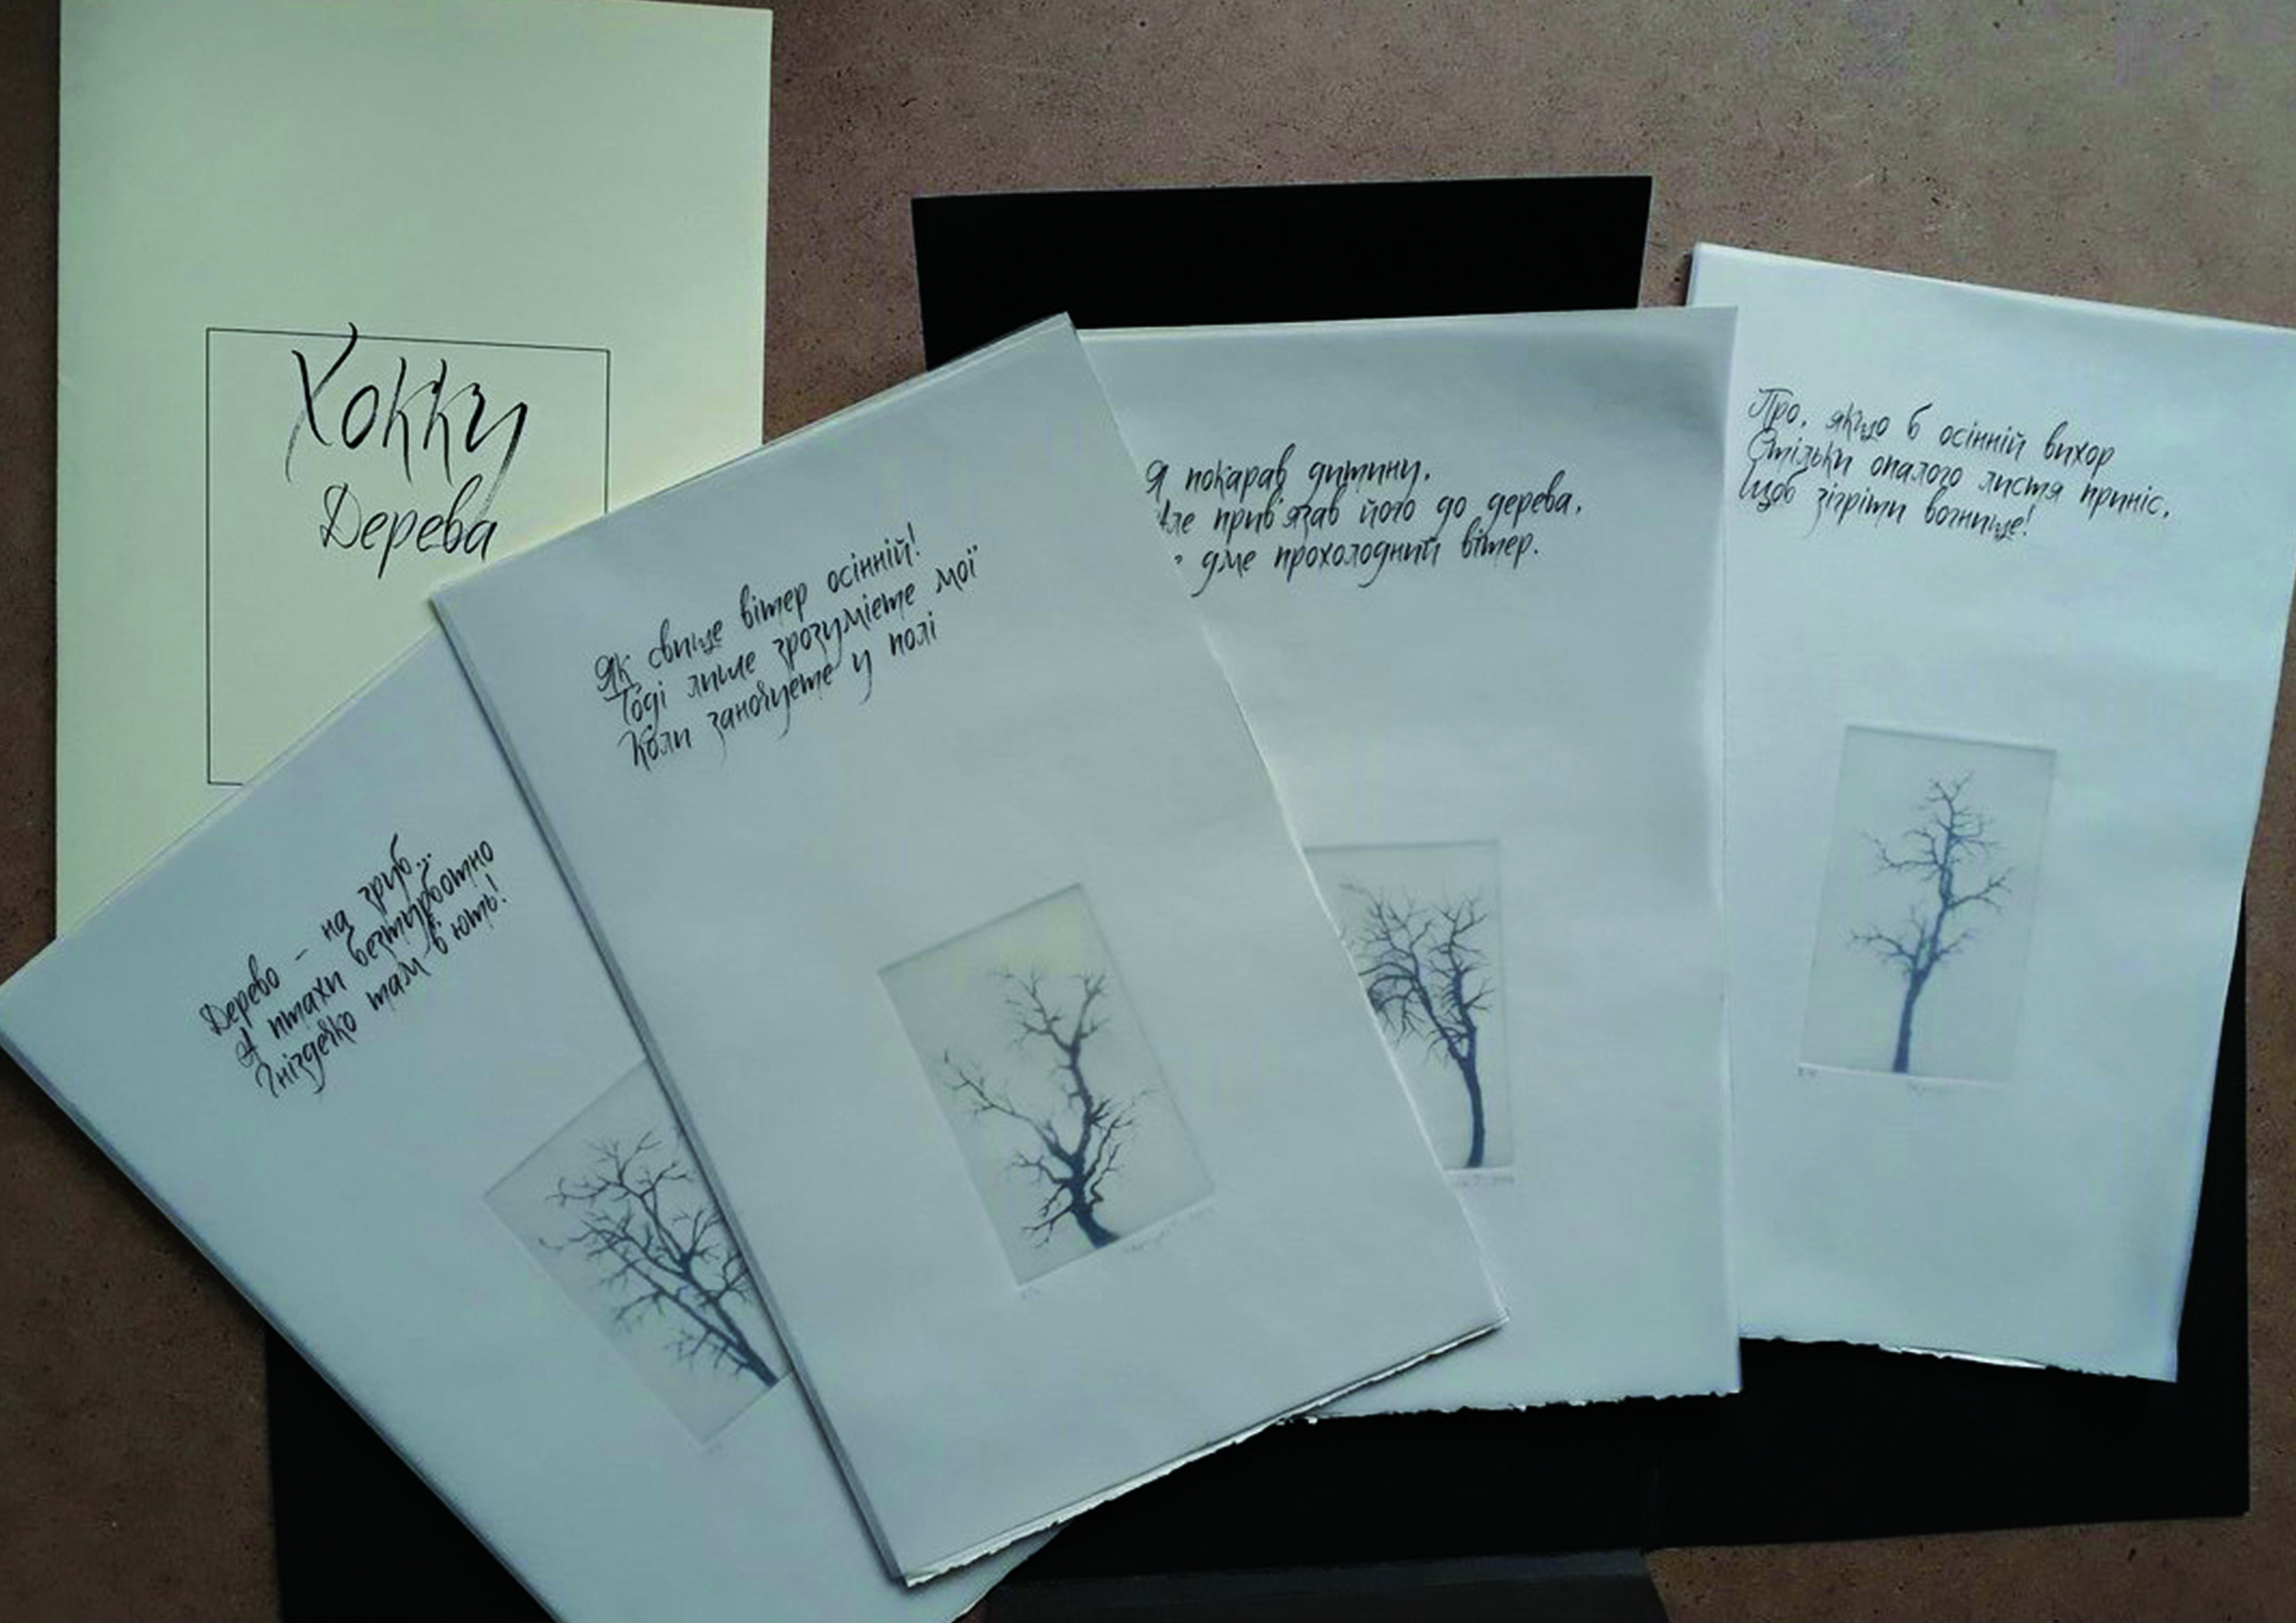 Хокку
Дерева
Дерево – на зруб...
А птахи безтурботно
Гніздечко там в'ють!
Як свище вітер осінній!
Тоді лише зрозумієте мої
Коли заночуєте у полі
Я покарав дитину.
прив'язав його до дерева,
дме прохолодний вітер.
Про, якщо б осінній вихор
Стільки опалого листя приніс,
Щоб зігріти вогнище!